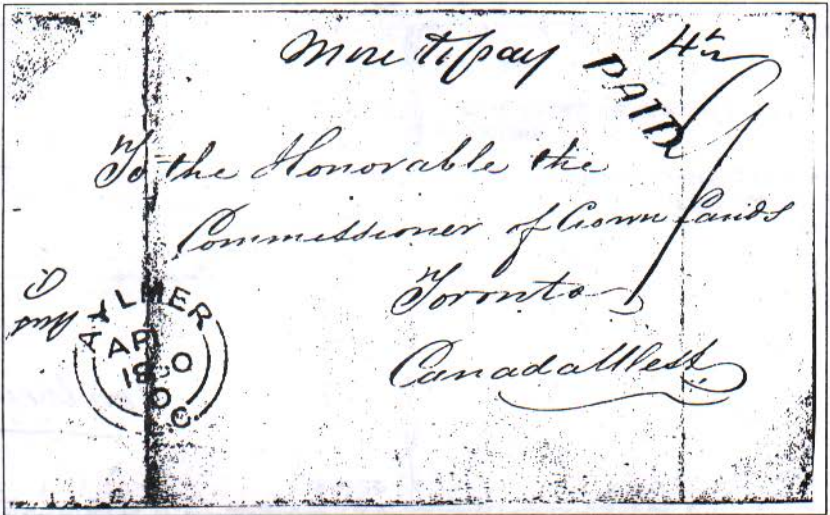 More to pay
PAID
To the Honorable the
Commissioner of Crown Lands
Toronto
Canada West
AYLMER
AP